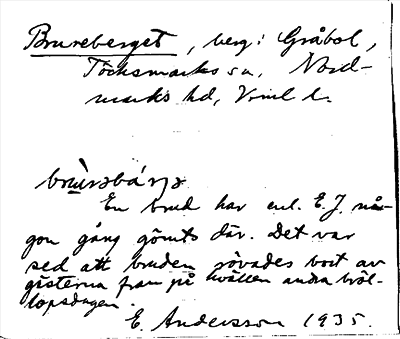 Brureberget, berg: Gråbol,
Töcksmarks sn, Nord-
marks hd, Vrml l.
brùrəbá rjə
En brud har enl. E. J. nå-
gon gång gömts där. Det var
sed att bruden rövades bort av
gästerna fram på kvällen andra bröl-
lopsdagen.
E. Andersson 1935.